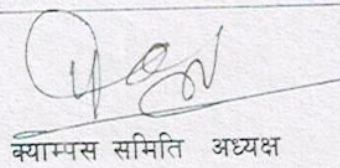 क्याम्पस समिति अध्यक्ष